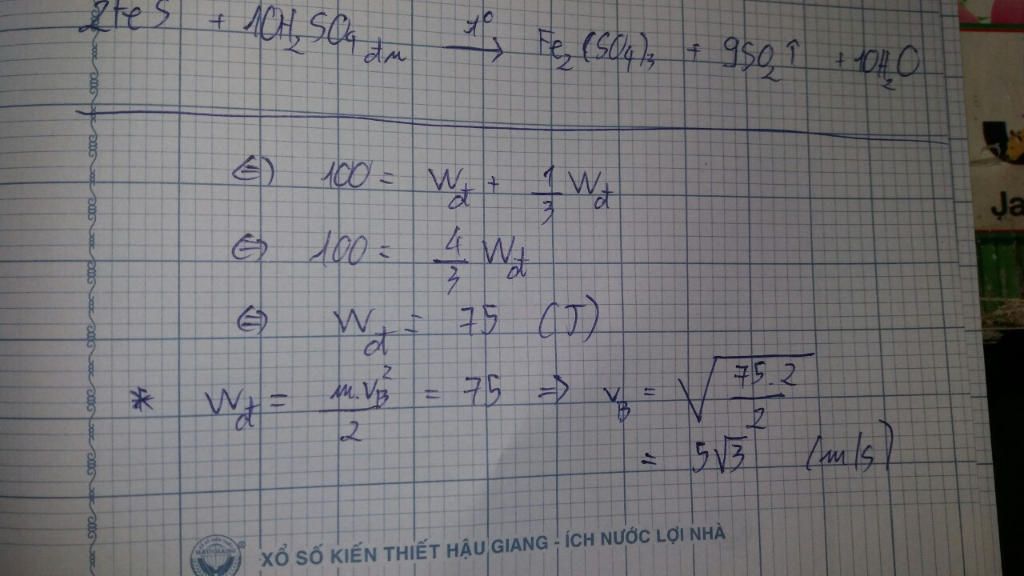 2FeS + 10H₂SO₄ đn —t°→ Fe₂(SO₄)₃ + 9SO₂↑ + 10H₂O
⇔) 100 = Wđ + 1/3 Wđ
⇔ 100 = 4/3 Wđ
⇔ Wđ = 75 (J)
* Wđ = m.v_B²/2 = 75 ⇒ v_B = √(75.2/2)
= 5√3 (m/s)
XỔ SỐ KIẾN THIẾT HẬU GIANG - ÍCH NƯỚC LỢI NHÀ
Ja